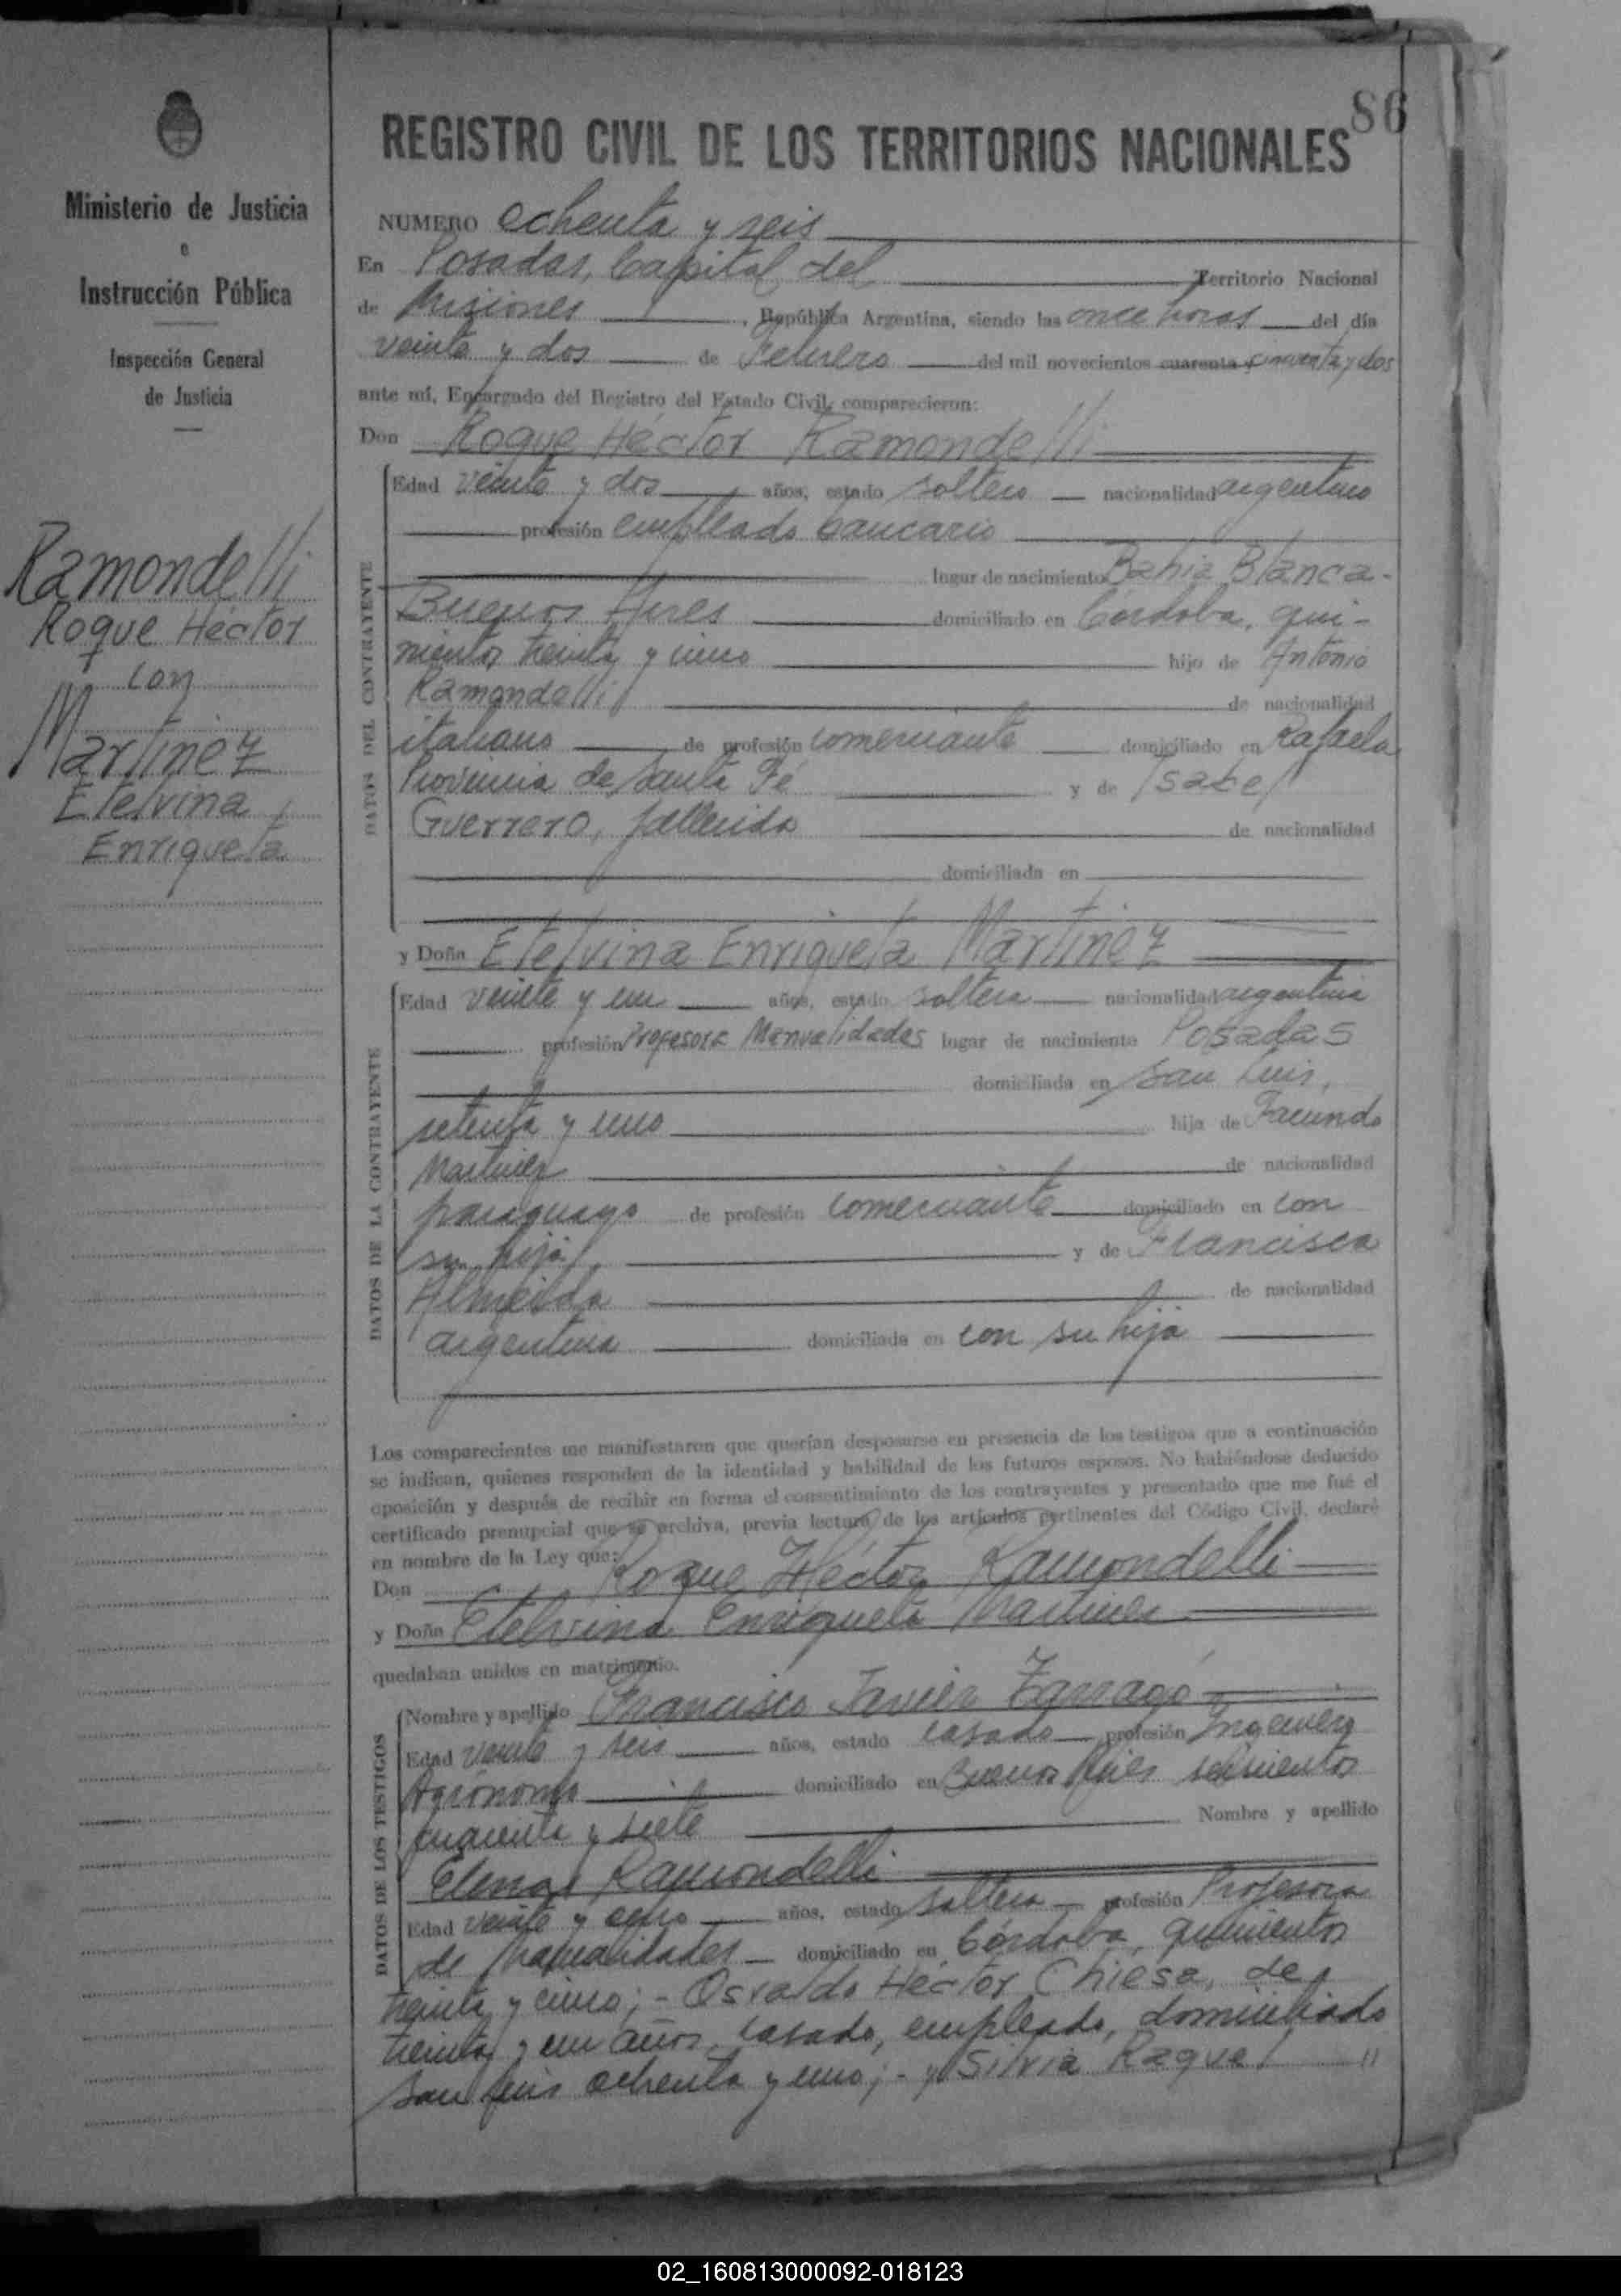 86
Ministerio de Justicia
e
Instrucción Pública
Inspección General
de Justicia
Ramondelli
Roque Héctor
con
Martinez
Etelvina
Enriqueta
REGISTRO CIVIL DE LOS TERRITORIOS NACIONALES
NUMERO ochenta y seis
En Posadas, Capital del Territorio Nacional
de Misiones, República Argentina, siendo las once horas del día
veinte y dos de Febrero del mil novecientos cuarenta y cincuenta y dos
ante mí, Encargado del Registro del Estado Civil, comparecieron:
Don Roque Héctor Ramondelli
DATOS DEL CONTRAYENTE
Edad veinte y dos años, estado soltero nacionalidad argentino
profesión empleado bancario
lugar de nacimiento Bahia Blanca-
Buenos Aires domiciliado en Córdoba, qui-
nientos treinta y cinco hijo de Antonio
Ramondelli de nacionalidad
italiano de profesión comerciante domiciliado en Rafaela
Provincia de Santa Fé y de Isabel
Guerrero, fallecida de nacionalidad
domiciliada en
y Doña Etelvina Enriqueta Martinez
DATOS DE LA CONTRAYENTE
Edad veinte y un años, estado soltera nacionalidad argentina
profesión Profesora Manualidades lugar de nacimiento Posadas
domiciliada en San Luis,
setenta y uno hija de Facundo
Martinez de nacionalidad
paraguayo de profesión comerciante domiciliado en con
su hija y de Francisca
Almeida de nacionalidad
argentina domiciliada en con su hija
Los comparecientes me manifestaron que querían desposarse en presencia de los testigos que a continuación
se indican, quienes responden de la identidad y habilidad de los futuros esposos. No habiéndose deducido
oposición y después de recibir en forma el consentimiento de los contrayentes y presentado que me fué el
certificado prenupcial que se archiva, previa lectura de los artículos pertinentes del Código Civil, declaré
en nombre de la Ley que:
Don Roque Héctor Ramondelli
y Doña Etelvina Enriqueta Martinez
quedaban unidos en matrimonio.
DATOS DE LOS TESTIGOS
Nombre y apellido Francisco Javier Zarragó
Edad veinte y seis años, estado casado profesión Ingeniero
Agrónomo domiciliado en Buenos Aires seiscientos
cuarenta y siete Nombre y apellido
Elena Ramondelli
Edad veinte y ocho años, estado soltera profesión Profesora
de Manualidades domiciliado en Córdoba, quinientos
treinta y cinco; - Osvaldo Héctor Chiesa, de
treinta y un años, casado, empleado, domiciliado
San Luis ochenta y uno; - y Silvia Raquel //
02_160813000092-018123